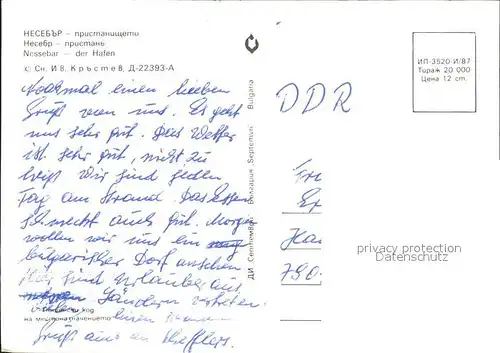 НЕСЕБЪР – пристанището
Несебр – пристань
Nessebar – der Hafen
с. Сн. Ив. Кръстев, Д-22393-А
Nochmal einen lieben
Gruß von uns. Es geht
uns sehr gut. Das Wetter
ist sehr gut, nicht zu
heiß wir sind jeden
Tag am Strand. Das Essen
schmeckt auch gut. Morgen
wollen wir uns ein
bulgarisches Dorf ansehen
Hier sind Urlauber aus
vielen Ländern vertreten.
на местоназначението
Gruß aus
ДИ Септември България Septemvri Bulgaria
DDR
ИП-3520-И/87
Тираж 20 000
Цена 12 ст.
privacy protection
Datenschutz
790